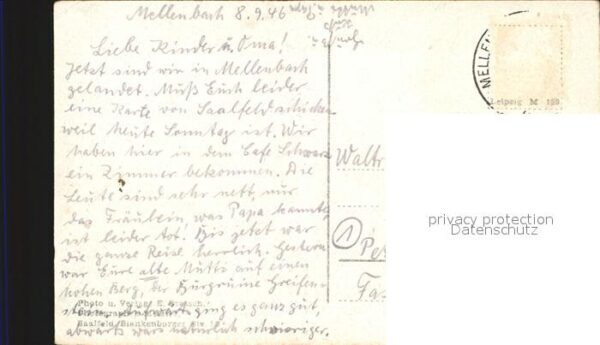 Mellenbach 8.9.46
Liebe Kinder u. Oma!
Jetzt sind wir in Mellenbach
gelandet. Muß Euch leider
eine Karte von Saalfeld schicken
weil heute Sonntag ist. Wir
haben hier in dem Cafe Schwarz
ein Zimmer bekommen. Die
Leute sind sehr nett, nur
das Fräulein was Papa kannte,
ist leider tot! Bis jetzt war
die ganze Reise herrlich. Gestern
war Eure alte Mutti auf einen
hohen Berg, der Burgruine Greifen-
stein. Aufwärts ging es ganz gut,
abwärts wars natürlich schwieriger.
Photo u. Verlag: E.
Saalfeld, Blankenburger Str.
MELLEN
Leipzig M
Waltr
1 Pe
privacy protection
Datenschutz